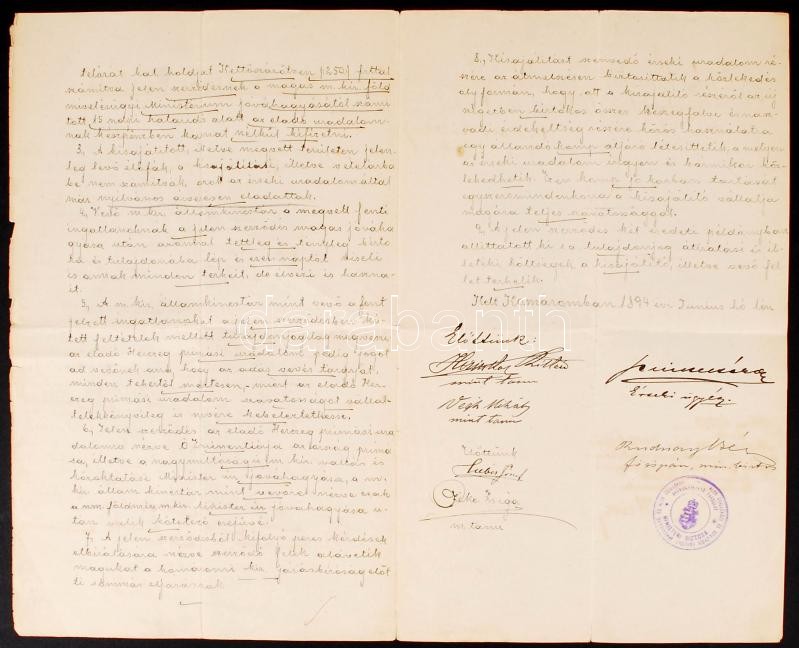 kat. holdját Kettőszázötven /250/ frttal
számitva jelen szerződésnek a magas m. kir. föld
mivelésügyi Ministerium jóváhagyásától számi
tott 15 napi határidő alatt az eladó uradalom-
nak készpénzben kamat nélkül kifizetni.
3., A kisajátitott, illetve megvett területen jelen-
leg levő élőfák, a kisajátitási, illetve vételárba
be nem számitvák, azok az érseki uradalom által
már nyilvános árverésen eladattak.
4., Vevő m. kir. államkincstár a megvett fenti
ingatlanoknak a jelen szerződés magas jóváha
gyása után azonnal tettleg és tényleg birto
ka és tulajdonába lép és ezen naptól viseli
is annak minden terheit, de élvezi és haszna-
it.
5., A m. kir. államkincstár mint vevő a fent
jelzett ingatlanokat a jelen szerződésben kö
tött feltételek mellett tulajdonjogilag megveszi
az eladó Herczeg primási uradalom pedig jogot
ad vevőnek arra, hogy az adás vevés tárgyát,
minden tehertől mentesen, mint az eladó Her-
czeg primási uradalom sajátságát saját
telekkönyvileg is nevére kebeleztethesse.
6., Jelen szerződés az eladó Herczeg primási ura-
dalomra nézve Ő Eminentiája az ország primá
sa, illetve a nagyméltóságú m. kir. vallás és
közoktatási Minister úr jóváhagyása, a m.
kir. állam kincstár mint vevőre nézve csak
a nm. földmiv. m. kir. Minister úr jóváhagyása u-
tán válik kötelező erejűvé.
7., A jelen szerződésből kifolyó peres kérdések
elbirálására nézve szerződő felek alávetik
magukat a komáromi kir. járásbiróság előt
ti sommás eljárásnak.
8., Kisajátitást szenvedő érseki uradalom ré-
szére az átmetszésen biztosittatik a közlekedés
oly formán, hogy ott a kisajátitó részéről az új
birtokos összes
érdekeltség részére közös használatra
egy állandó komp átjáró létesittetik, a melyen
az érseki uradalom ingyen és bármikor köz-
lekedhetik. Ezen komp jó karban tartását
egyszersmindenkorra a kisajátitó vállalja
magára teljes
9., A jelen szerződés két eredeti példányban
állittatott ki s a tulajdonjog átiratási és il-
letéki költségek a kisajátitó, illetve vevő fel
let terhelik.
Kelt Komáromban 1894 évi Junius hó -én
Előttünk:
mint tanu
Végh Mihály
mint tanu
Érseki ügyész.
Előttünk
József
főispán, min. biztos
m. tanu
darabanth